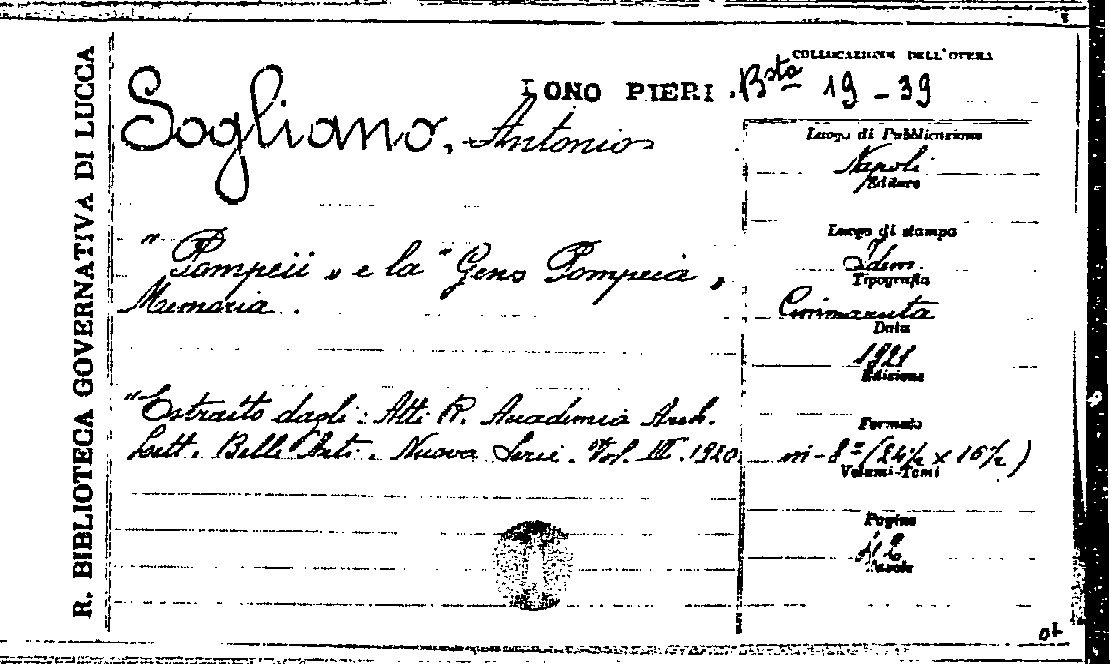 R. BIBLIOTECA GOVERNATIVA DI LUCCA
COLLOCAZIONE DELL'OPERA
DONO PIERI. Bsta 19-39
Sogliano, Antonio
"Pompeii" e la "Gens Pompeia"
Memoria.
"Estratto dagli: Atti R. Accademia Arch.
Lett. Belle Arti. Nuova Serie. Vol. VI. 1920
Luogo di Pubblicazione
Napoli
Editore
Luogo di stampa
Idem
Tipografia
Cimmaruta
Data
1921
Edizione
Formato
in-8º (24½ x 16½)
Volumi-Tomi
Pagine
Tavole